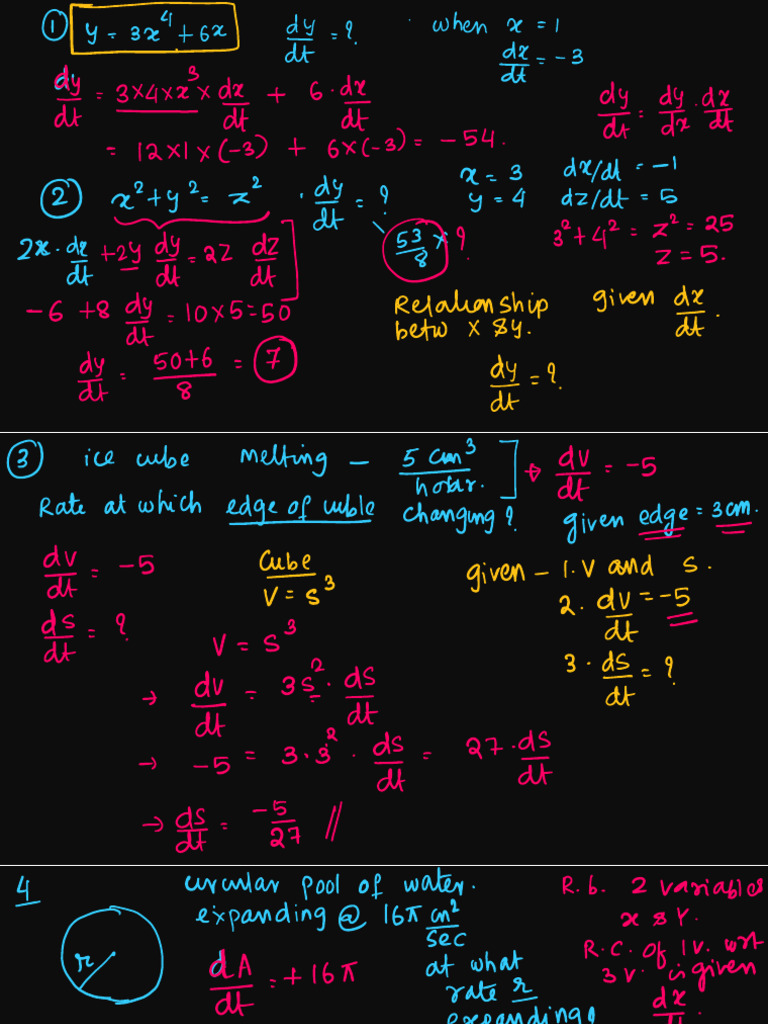 1) y = 3x⁴ + 6x   dy/dt = ?   when x = 1
dx/dt = -3
dy/dt = 3×4×x³ × dx/dt + 6 · dx/dt
dy/dt = dy/dx · dx/dt
= 12×1×(-3) + 6×(-3) = -54.
2) x² + y² = z²   · dy/dt = ?   x = 3   dx/dt = -1
y = 4   dz/dt = 5
2x · dx/dt + 2y dy/dt = 2z dz/dt
53/8 × ?
3² + 4² = z² = 25
z = 5.
-6 + 8 dy/dt = 10×5 = 50
Relationship given dx/dt.
betw x & y.
dy/dt = 50+6/8 = 7
dy/dt = ?
3) ice cube melting – 5 cm³/hour. → dv/dt = -5
Rate at which edge of cuble changing? given edge = 3cm.
dv/dt = -5
Cube
V = s³
given – 1. V and s.
2. dv/dt = -5
3. ds/dt = ?
ds/dt = ?
V = s³
→ dv/dt = 3s² · ds/dt
→ -5 = 3·3² · ds/dt = 27 · ds/dt
→ ds/dt = -5/27 //
4 circular pool of water.
expanding @ 16π cm²/sec
r
dA/dt = +16π
at what
rate r
expanding?
R.b. 2 variables
x & y.
R.C. of 1v. wrt
3v. is given
dx/dt